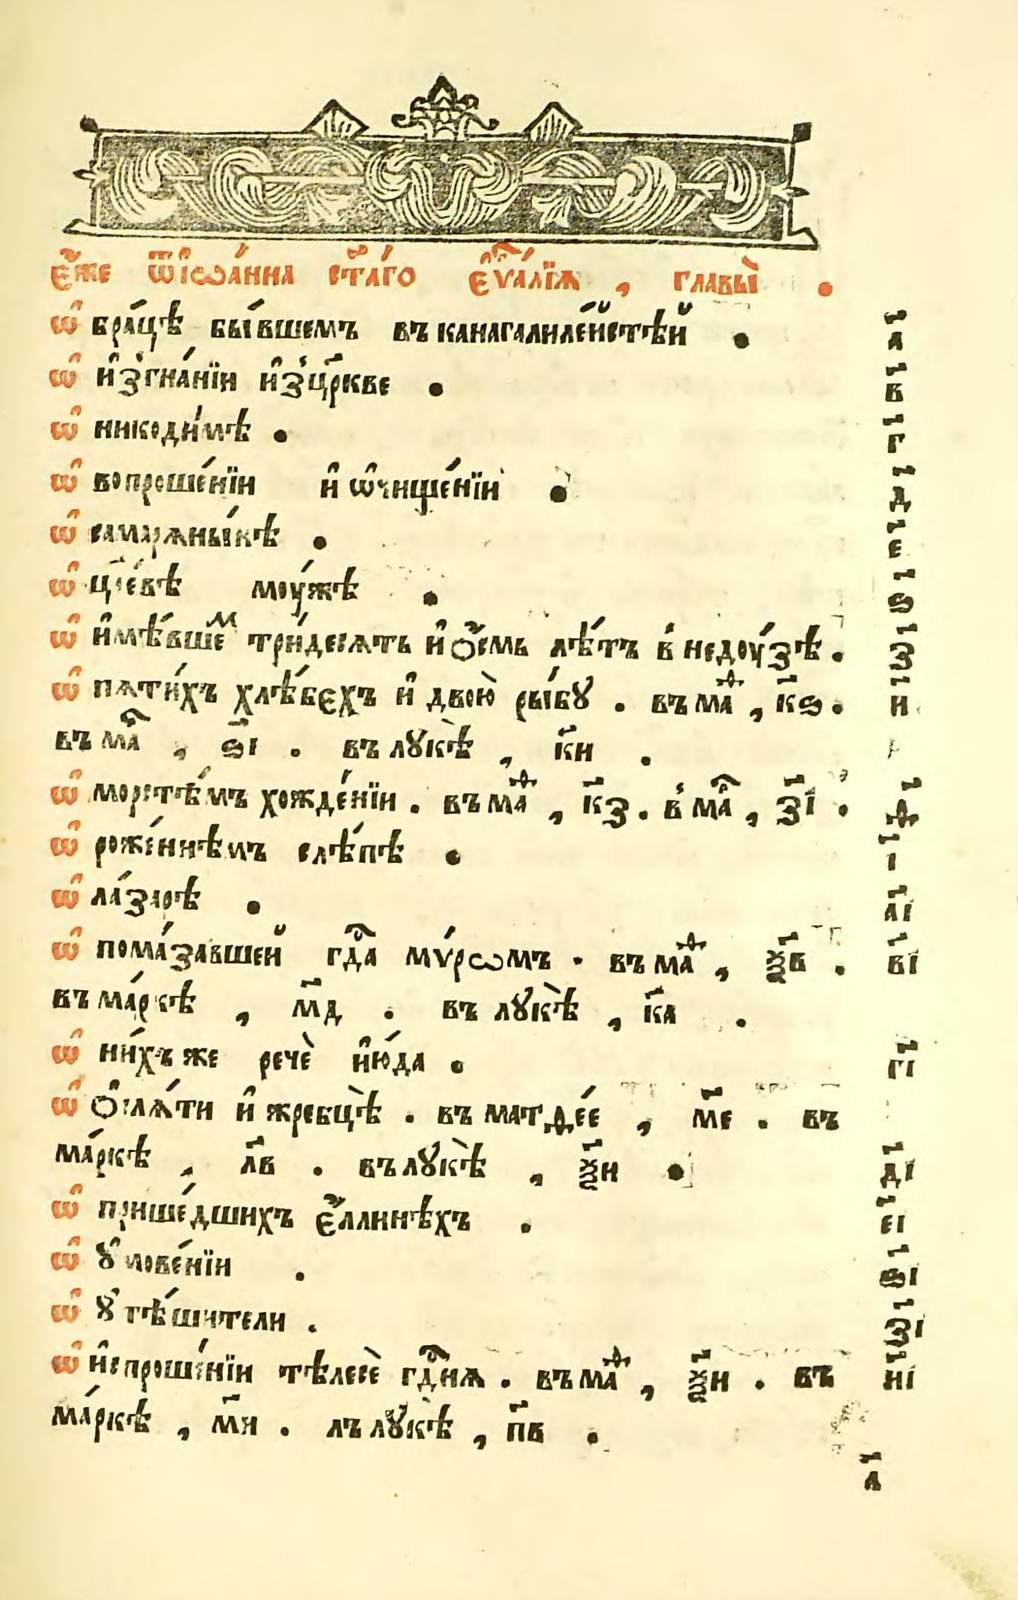 Е҆́же ѿіѡа́нна ст҃а́го є҆ѵⷢ҇а́лїѧ , главы̀ .
ѽ бра́цѣ бы́вшемъ въканагалиле́йстѣй . а҃
ѽ и҆згна́нїи и҆зцр҃кве . в҃
ѽ никоди́мѣ . г҃
ѽ вопроше́нїи и҆ ѡ҆чище́нїи . д҃
ѽ самарѧны́нѣ . е҃
ѽ цр҃евѣ моу́жѣ . ѕ҃
ѽ и҆мѣ́вшеⷨ три́десѧть и҆ ѻ҆́семь лѣ́тъ в недоу́зѣ . з҃
ѽ пѧти́хъ хлѣ́бєхъ и҆ двою̀ ры́бꙋ . въ маⷴ , к҃ѕ . и҃
въ маⷬ , ѕ҃і . въ лꙋкѣ̀ , к҃и .
ѽ морстѣ́мъ хожде́нїи . въ маⷴ , к҃з . в маⷬ , з҃і . ѳ҃
ѽ роже́ннѣмъ слѣ́пѣ . і҃
ѽ ла́зарѣ . а҃і
ѽ пома́завшей гдⷭ҇а мѵ́рѡмъ . въ маⷴ , ѯ҃в . в҃і
въ ма́ркѣ , м҃д . въ лꙋкѣ̀ , к҃а .
ѽ ни́хъже речѐ и҆ю́да . г҃і
ѽ ѻ҆слѧ́ти и҆ жребцѣ̀ . въ матѳе́е , м҃е . въ
ма́ркѣ , л҃в . въ лꙋкѣ̀ , ѯ҃и . д҃і
ѽ прише́дшихъ є҆́ллинѣхъ . е҃і
ѽ ꙋ҆мове́нїи . ѕ҃і
ѽ ꙋ҆тѣ́шители . з҃і
ѽ и҆спроше́нїи тѣлесѐ гдⷭ҇нѧ . въ маⷴ , ѯ҃и . въ и҃і
ма́ркѣ , м҃и . лъ лꙋкѣ̀ , п҃в .
л҃